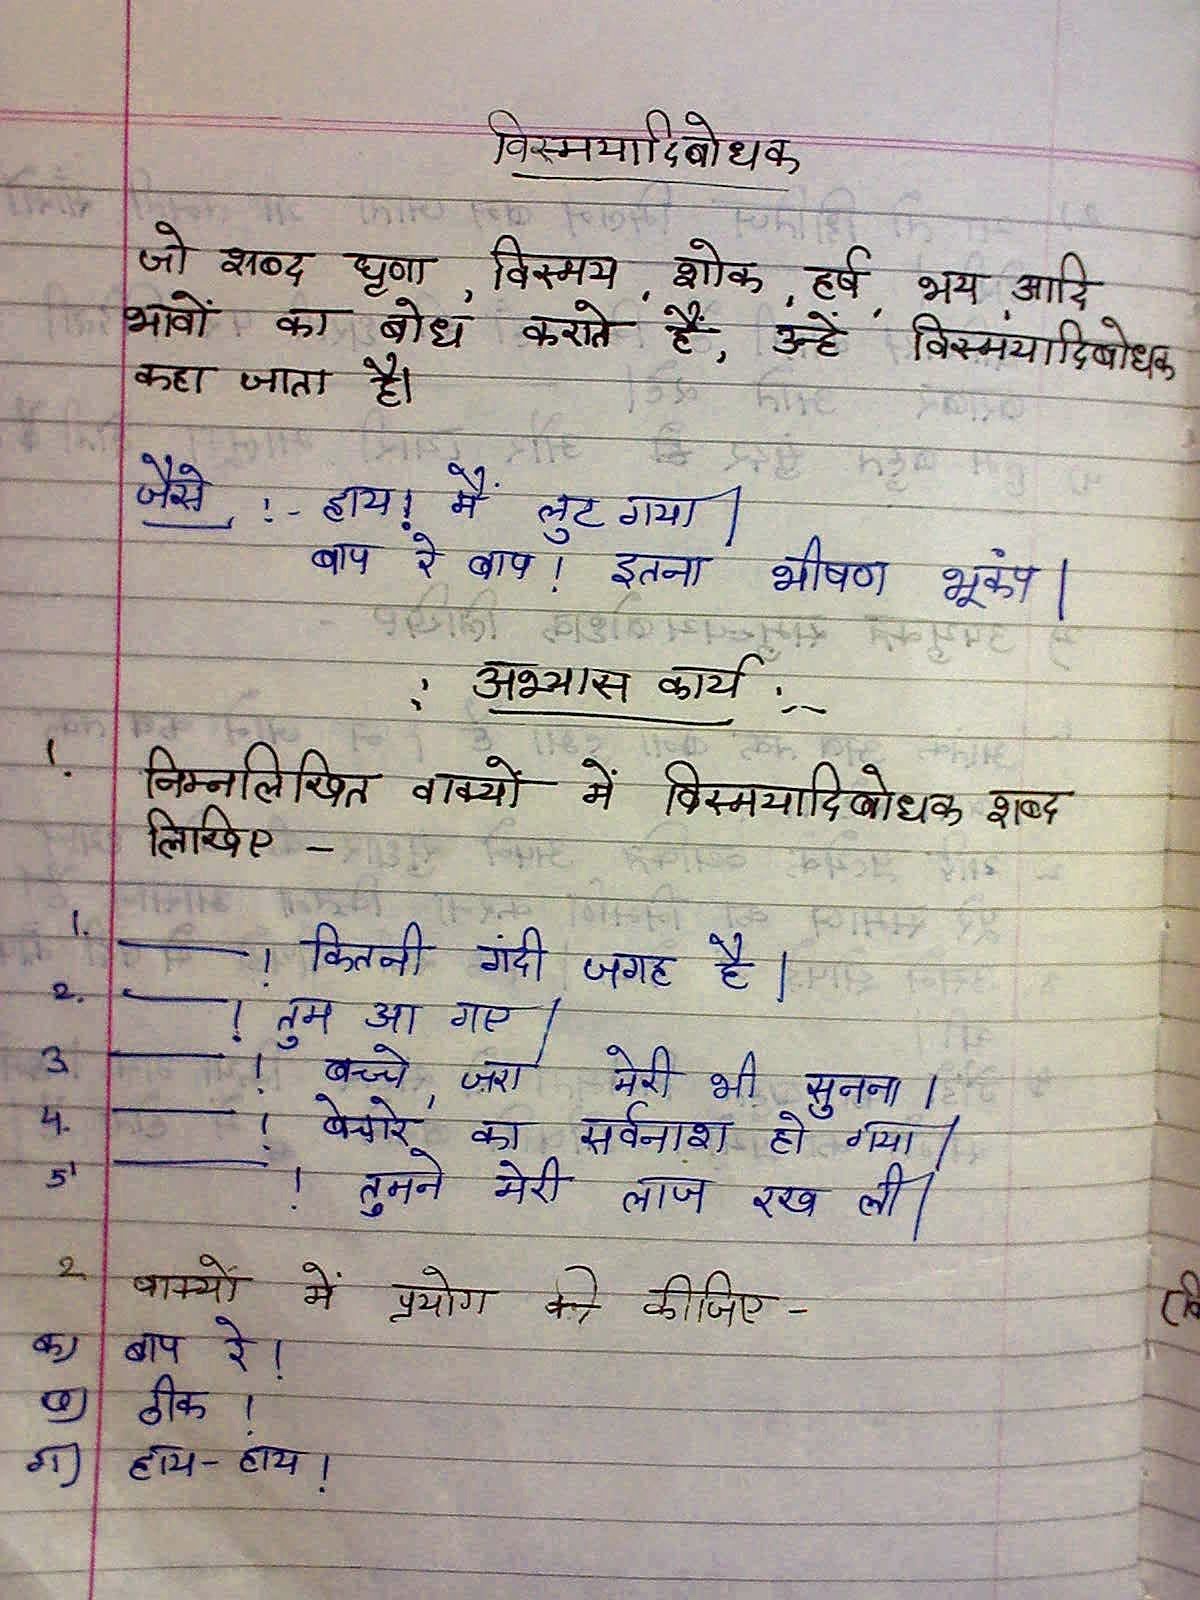 विस्मयादिबोधक
जो शब्द घृणा, विस्मय, शोक, हर्ष, भय, आदि
भावों का बोध कराते हैं, उन्हें विस्मयादिबोधक
कहा जाता है।
जैसे :- हाय! मैं लुट गया।
बाप रे बाप! इतना भीषण भूकंप।
: अभ्यास कार्य :-
1. निम्नलिखित वाक्यों में विस्मयादिबोधक शब्द
लिखिए -
1. ———! कितनी गंदी जगह है।
2. ———! तुम आ गए।
3. ———! बच्चे, जरा मेरी भी सुनना।
4. ———! बेचारे का सर्वनाश हो गया।
5. ———! तुमने मेरी लाज रख ली।
2. वाक्यों में प्रयोग कीजिए -
क) बाप रे!
ख) ठीक!
ग) हाय-हाय!